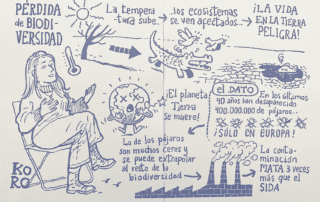 PÉRDIDA
de BIODI-
VERSIDAD
La tempera
tura sube
los ecosistemas
se ven afectados
¡LA VIDA
EN LA TIERRA
PELIGRA!
el DATO
En los últimos
40 años han desaparecido
100.000.000 de pájaros
¡SÓLO EN EUROPA!
¡El planeta
Tierra
se muere!
Lo de los pájaros
son muchos ceros y
se puede extrapolar
al resto de la
biodiversidad
La conta-
minación
MATA 3 veces
más que el
SIDA
KO
RO